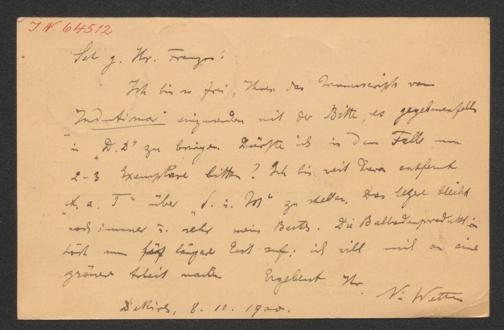 J.N. 64512
Seh g. Hr. Franzos!
Ich bin so frei, Ihnen das Manuscript von
"Indutiomar" einzusenden mit der Bitte, es gegebenenfalls
in "D. D" zu bringen. Dürfte ich in dem Falle um
2-3 Exemplare bitten? Ich bin weit davon entfernt
"k. a. T" über "f. u. W" zu stellen. Das letzte bleibt
noch immer u. sehr mein Bestes. Die Balladenproduktion
hört nun längere Zeit auf; ich will mich an eine
größere Arbeit machen Ergebenst Ihr
8. 10. 1900.